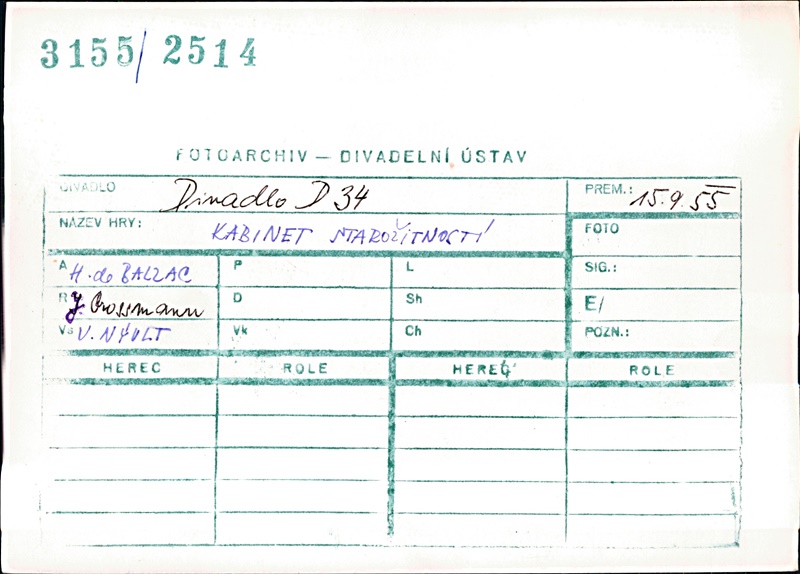 3155/2514
FOTOARCHIV — DIVADELNÍ ÚSTAV
DIVADLO Divadlo D 34 PREM.: 15.9.55
NÁZEV HRY: KABINET STAROŽITNOSTÍ FOTO
A H. de BALZAC P L SIG.:
R J. Grossmann D Sh E/
Vs V. NÝVLT Vk Ch POZN.:
HEREC ROLE HEREC ROLE